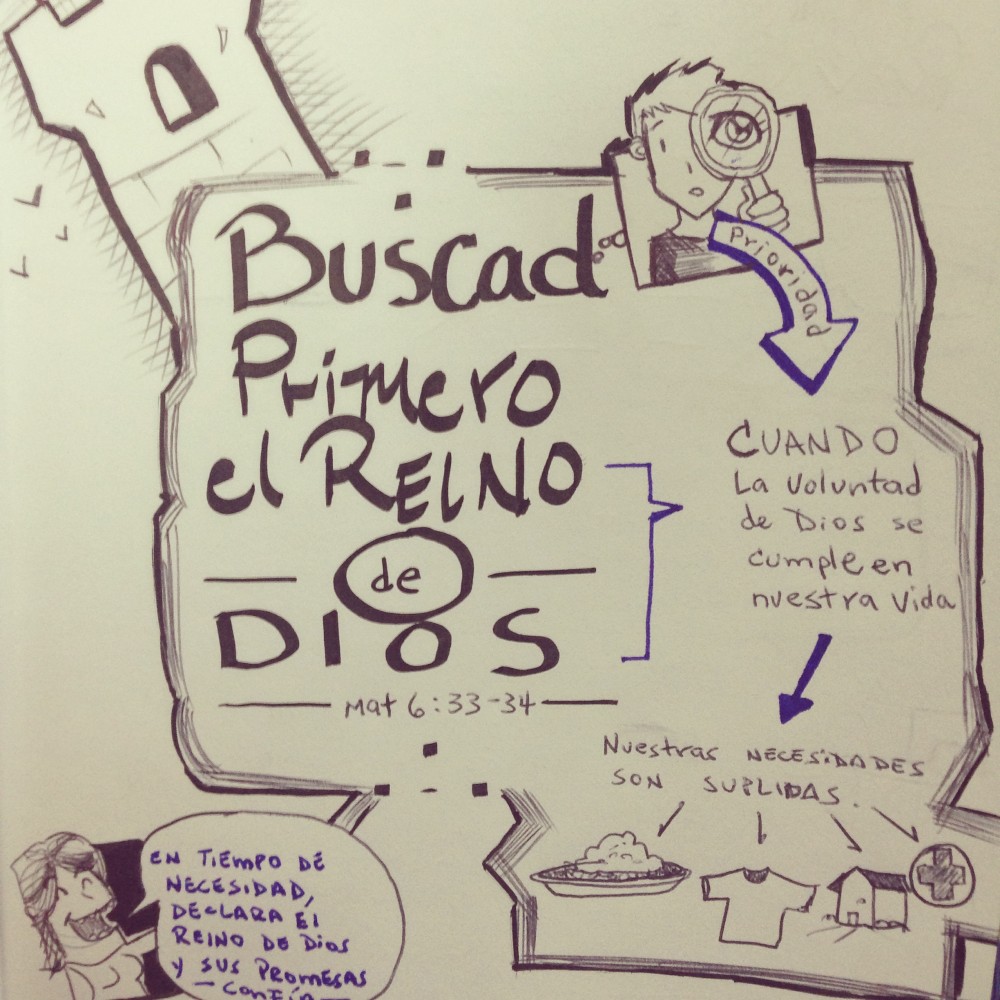 Buscad
Primero
el REINO
de
DIOS
Mat 6:33-34
Prioridad
CUANDO
La Voluntad
de Dios se
cumple en
nuestra vida
Nuestras NECESiDADES
SON SUPLIDAS.
EN TIEMPO DE
NECESIDAD,
DECLARA El
REINO DE DioS
y SUS PROMESAS
- CONFÍA -